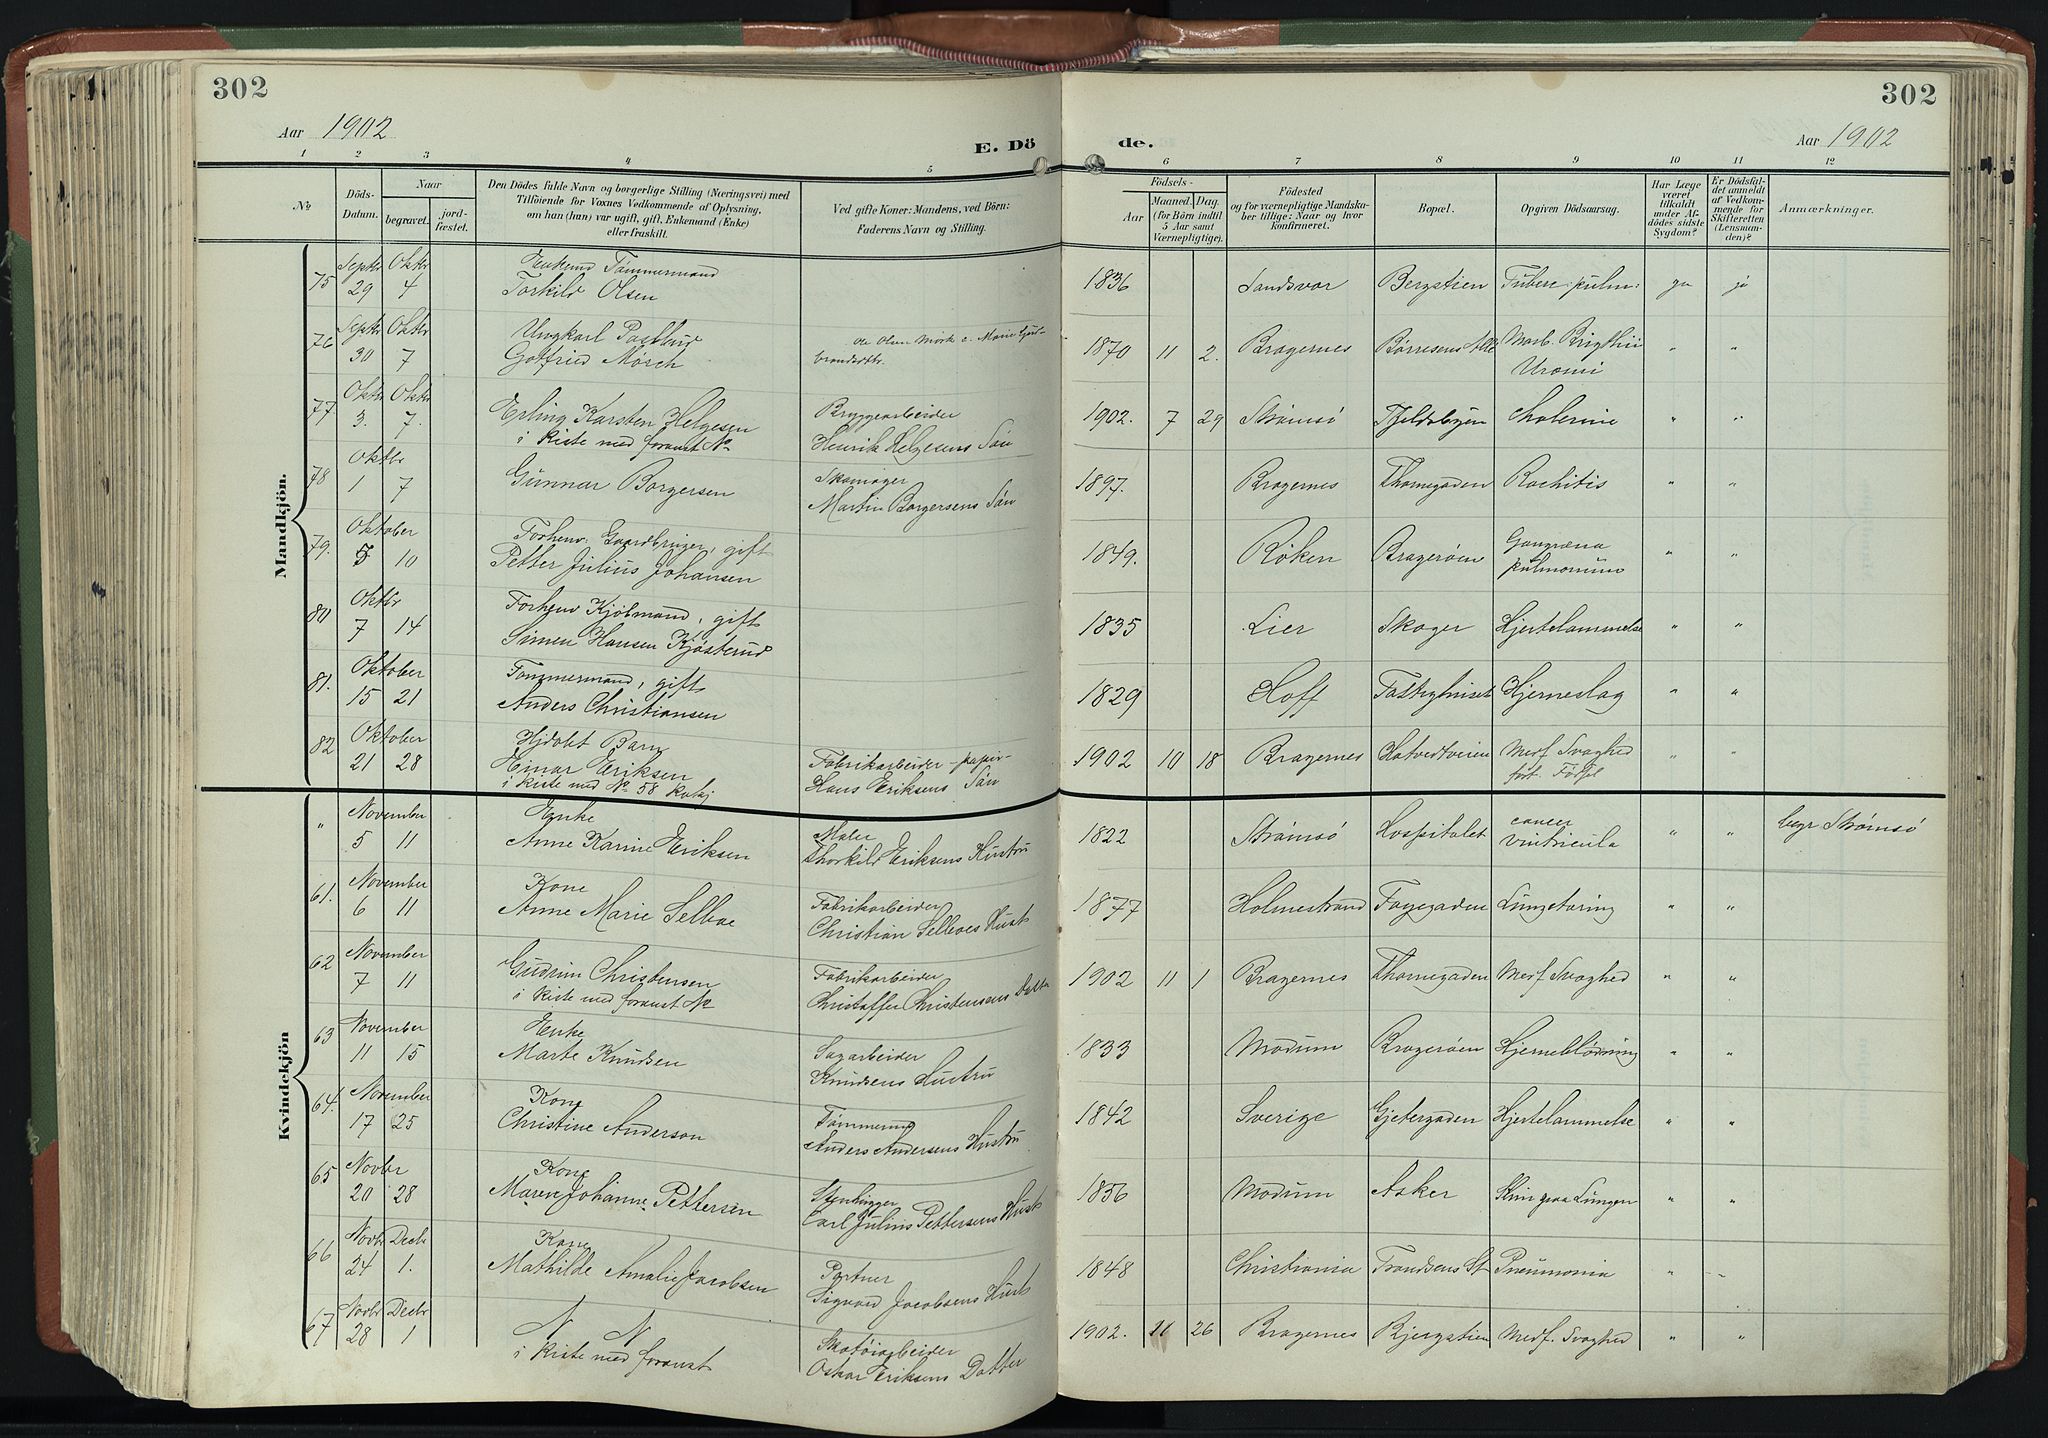 302
302
Aar 1902
E. Dö
de.
Aar 1902
1 2 3 4 5 6 7 8 9 10 11 12
№
Döds-Datum.
Naar
begravet.
jord-fæstet.
Den Dödes fulde Navn og borgerlige Stilling (Næringsvei) med
Tilföiende for Voxnes Vedkommende af Oplysning,
om han (hun) var ugift, gift, Enkemand (Enke)
eller fraskilt.
Ved gifte Koner: Mandens, ved Börn:
Faderens Navn og Stilling.
Födsels-
Aar
Maaned. Dag.
(for Börn indtil
5 Aar samt
Værnepligtige).
Födested
og for værnepligtige Mandska-
ber tillige: Naar og hvor
konfirmeret.
Bopæl.
Opgiven Dödsaarsag.
Har Læge
været
tilkaldt
under Af-
dödes sidste
Sygdom?
Er Dödsfal-
det anmeldt
af Vedkom-
mende for
Skifteretten
(Lensman-
den)?
Anmærkninger.
Mandkjön.
75 Septbr 29 Oktbr 4 Enkemd Tømmermand
Torkild Olsen 1836 Sandsvær Bergstien Tuberc. pulm: ja ja
76 Septbr 30 Oktbr 7 Ungkarl Postbud
Gotfried Mörch 1870 11 2. Bragernes Børresens Alle Morb. Brigthii
Uræmi " "
77. Oktbr 3. Oktbr 7. Erling Karsten Helgesen
i kiste med foranst №
Bryggearbeider
Henrik Helgesens Sön 1902. 7 29 Strømsö Fjeldobyen Cholerine " "
78 Oktbr 1 7 Gunnar Borgersen
Skomager
Martin Borgersens Sön 1897. Bragernes Thornegaden Rachitis " "
79. Oktober 5 10 Forhenv. Gaardbruger, gift
Petter Julius Johansen 1849. Röken Bragerøen Gangræna
pulmonum " "
80 Oktbr 7 14 Forhenv Kjöbmand, gift
Simen Hansen Kjösterud 1835 Lier Skoger Hjertelammelse " "
81. Oktober 15 21 Tømmermand, gift
Anders Christiansen 1829 Hoff Fattighuset Hjerneslag " "
82 Oktober 21 28 Hjdøbt Barn
Einar Eriksen
i kiste med № 58
Fabrikarbeider - papir-
Hans Eriksens Sön 1902 10 18 Bragernes Hotvedtveien Medf Svaghed
fort. Födsel " "
Kvindekjön
" November 5 11 Enke
Anne Karine Eriksen
Maler
Thorkild Eriksens Hustru 1822 Strømsö Hospitalet cancer
vintricula " " begr Strømsö
61. November 6 11 Kone
Anne Marie Selboe
Fabrikarbeider
Christian Selboes Hust 1877 Holmestrand Fayegaden Lungetæring " "
62 November 7 11 Gudrun Christensen
i kiste med foranst №
Fabrikarbeider
Christoffer Christensens Datter 1902 11 1 Bragernes Thornegaden Medf Svaghed " "
63 November 11 15 Enke
Marte Knudsen
Sagarbeider
Knudsens Hustru 1833 Modum Bragerøen Hjerneblödning " "
64. November 17 25 Kone
Christine Anderson
Tømmermd
Anders Andersens Hustru 1842 Sverige Gjetergaden Hjertelammelse " "
65 Novbr 20 28 Kone
Maren Johanne Pettersen
Stenhugger
Carl Julius Pettersens Hust 1856 Modum Asker Slim paa Lungen " "
66 Novbr 24 Decbr 1. Kone
Mathilde Amalie Jacobsen
Portner
Sigvard Jacobsens Hust 1848 Christiania Trondsens St Pneumonia " "
67 Novbr 28 Decbr 1 N N
i kiste med foranst
Skotøiarbeider
Oskar Eriksens Datter 1902. 11 26 Bragernes Bjergstien Medf. Svaghed " "